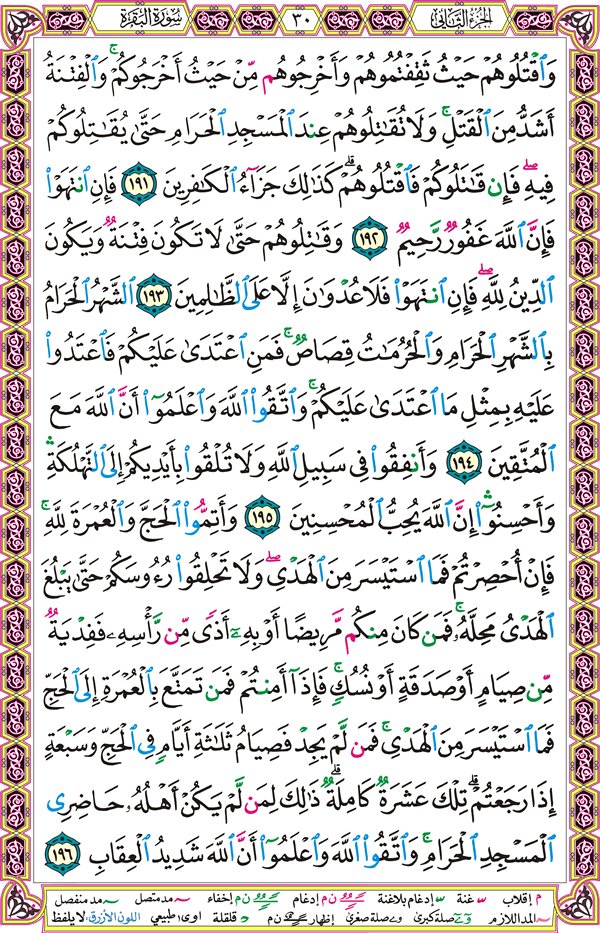 الجزء الثاني ٣٠ سورة البقرة
وَٱقْتُلُوهُمْ حَيْثُ ثَقِفْتُمُوهُمْ وَأَخْرِجُوهُم مِّنْ حَيْثُ أَخْرَجُوكُمْ ۚ وَٱلْفِتْنَةُ
أَشَدُّ مِنَ ٱلْقَتْلِ ۚ وَلَا تُقَٰتِلُوهُمْ عِندَ ٱلْمَسْجِدِ ٱلْحَرَامِ حَتَّىٰ يُقَٰتِلُوكُمْ
فِيهِ ۖ فَإِن قَٰتَلُوكُمْ فَٱقْتُلُوهُمْ ۗ كَذَٰلِكَ جَزَآءُ ٱلْكَٰفِرِينَ ١٩١ فَإِنِ ٱنتَهَوْا۟
فَإِنَّ ٱللَّهَ غَفُورٌ رَّحِيمٌ ١٩٢ وَقَٰتِلُوهُمْ حَتَّىٰ لَا تَكُونَ فِتْنَةٌ وَيَكُونَ
ٱلدِّينُ لِلَّهِ ۖ فَإِنِ ٱنتَهَوْا۟ فَلَا عُدْوَٰنَ إِلَّا عَلَى ٱلظَّٰلِمِينَ ١٩٣ ٱلشَّهْرُ ٱلْحَرَامُ
بِٱلشَّهْرِ ٱلْحَرَامِ وَٱلْحُرُمَٰتُ قِصَاصٌ ۚ فَمَنِ ٱعْتَدَىٰ عَلَيْكُمْ فَٱعْتَدُوا۟
عَلَيْهِ بِمِثْلِ مَا ٱعْتَدَىٰ عَلَيْكُمْ ۚ وَٱتَّقُوا۟ ٱللَّهَ وَٱعْلَمُوٓا۟ أَنَّ ٱللَّهَ مَعَ
ٱلْمُتَّقِينَ ١٩٤ وَأَنفِقُوا۟ فِى سَبِيلِ ٱللَّهِ وَلَا تُلْقُوا۟ بِأَيْدِيكُمْ إِلَى ٱلتَّهْلُكَةِ ۛ
وَأَحْسِنُوٓا۟ ۛ إِنَّ ٱللَّهَ يُحِبُّ ٱلْمُحْسِنِينَ ١٩٥ وَأَتِمُّوا۟ ٱلْحَجَّ وَٱلْعُمْرَةَ لِلَّهِ ۚ
فَإِنْ أُحْصِرْتُمْ فَمَا ٱسْتَيْسَرَ مِنَ ٱلْهَدْىِ ۖ وَلَا تَحْلِقُوا۟ رُءُوسَكُمْ حَتَّىٰ يَبْلُغَ
ٱلْهَدْىُ مَحِلَّهُۥ ۚ فَمَن كَانَ مِنكُم مَّرِيضًا أَوْ بِهِۦٓ أَذًى مِّن رَّأْسِهِۦ فَفِدْيَةٌ
مِّن صِيَامٍ أَوْ صَدَقَةٍ أَوْ نُسُكٍ ۚ فَإِذَآ أَمِنتُمْ فَمَن تَمَتَّعَ بِٱلْعُمْرَةِ إِلَى ٱلْحَجِّ
فَمَا ٱسْتَيْسَرَ مِنَ ٱلْهَدْىِ ۚ فَمَن لَّمْ يَجِدْ فَصِيَامُ ثَلَٰثَةِ أَيَّامٍ فِى ٱلْحَجِّ وَسَبْعَةٍ
إِذَا رَجَعْتُمْ ۗ تِلْكَ عَشَرَةٌ كَامِلَةٌ ۗ ذَٰلِكَ لِمَن لَّمْ يَكُنْ أَهْلُهُۥ حَاضِرِى
ٱلْمَسْجِدِ ٱلْحَرَامِ ۚ وَٱتَّقُوا۟ ٱللَّهَ وَٱعْلَمُوٓا۟ أَنَّ ٱللَّهَ شَدِيدُ ٱلْعِقَابِ ١٩٦
م إقلاب غنة إدغام بلاغنة ن م إدغام ن م إخفاء مد متصل مد منفصل
المد اللازم صلة كبرى صلة صغرى إظهار ن م قلقلة اوى طبيعي اللون الأزرق: لا يلفظ